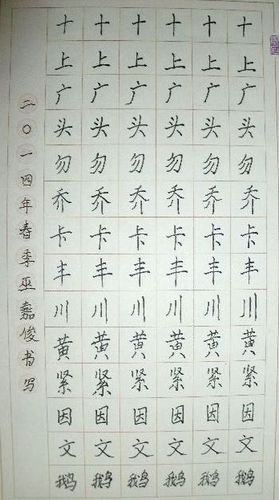 十十十十十十
上上上上上上
广广广广广广
头头头头头头
勿勿勿勿勿勿
乔乔乔乔乔乔
卡卡卡卡卡卡
丰丰丰丰丰丰
川川川川川川
黄黄黄黄黄黄
紧紧紧紧紧紧
因因因因因因
文文文文文文
鹅鹅鹅鹅鹅鹅
二〇一四年春季巫嘉俊书写